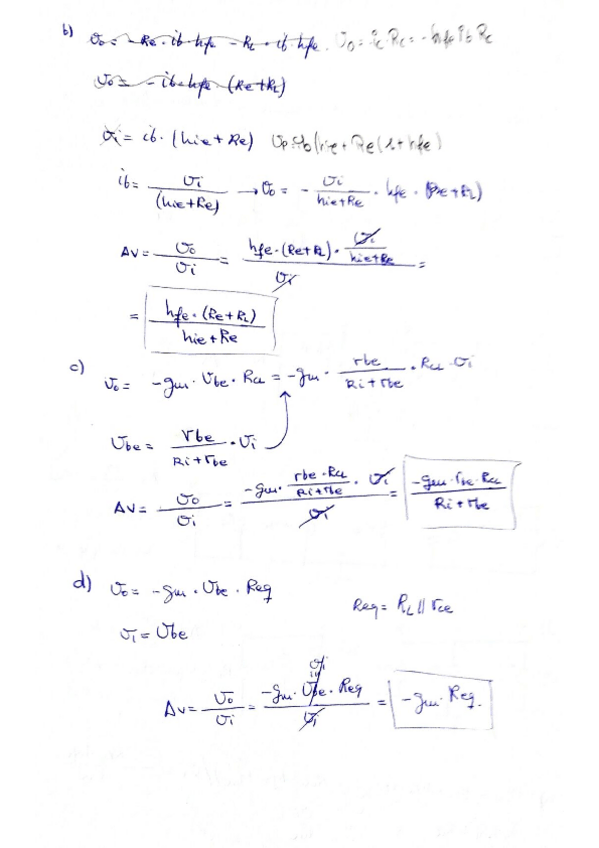 b) vo = -Re · ib · hfe - RL · ib · hfe. vo = ic · Rc = -hfe ib Rc
vo = -ib · hfe (Re+RL)
vi = ib · (hie + Re) vp = ib(hie + Re(1+hfe)
ib = vi / (hie+Re) → vo = - vi / hie+Re · hfe · (Re+RL)
Av = vo / vi = hfe · (Re+RL) · vi / hie+Re / vi =
= hfe · (Re+RL) / hie + Re
c) vo = -gm · Vbe · RCL = -gm · rbe / Ri + rbe · RCL · vi
Vbe = rbe / Ri + rbe · vi
Av = vo / vi = -gm · rbe · RCL / Ri + rbe · vi / vi = -gm · rbe · RCL / Ri + rbe
d) vo = -gm · Vbe · Req Req = RL // rce
vi = Vbe
vi
Av = vo / vi = -gm · Vbe · Req / vi = -gm · Req.